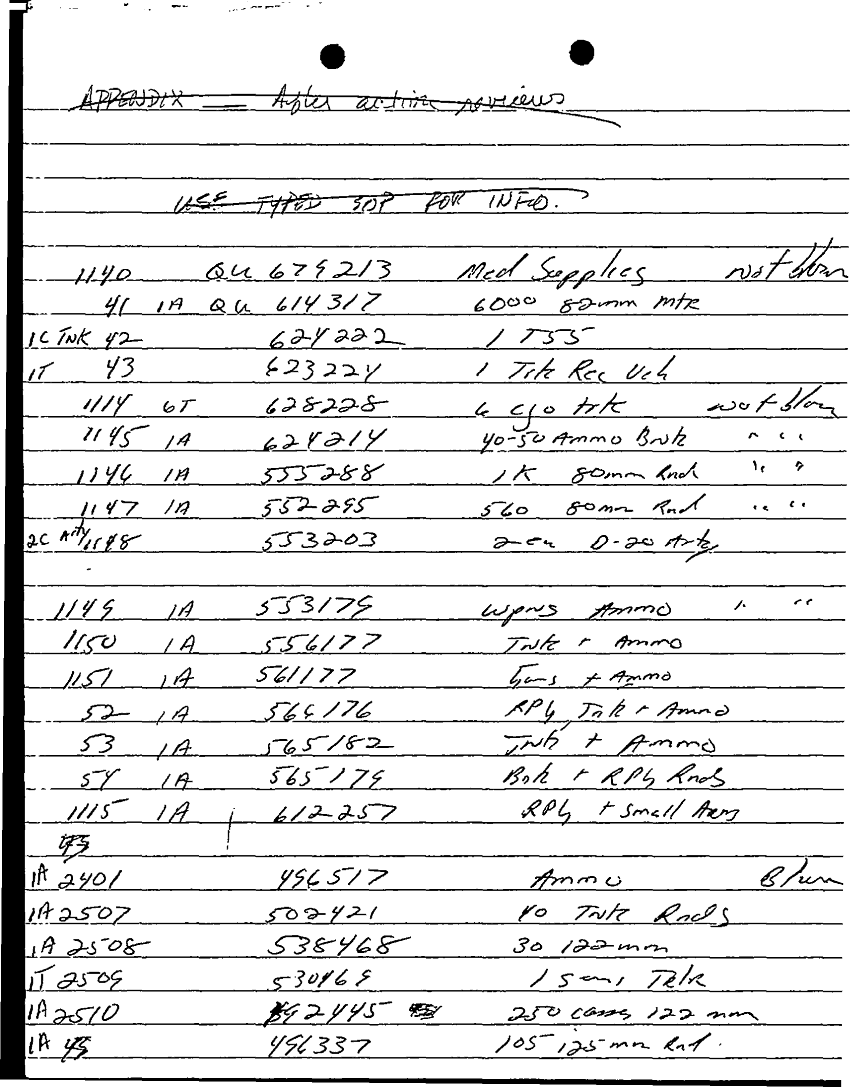 APPENDIX — After action reviews
USE TYPED SOP FOR INFO.
1140 QU 679213 Med Supplies not blown
41 1A QU 614317 6000 82mm mtr
1C TNK 42 624222 1 T55
1T 43 623224 1 Trk Rec Veh
1114 6T 628228 6 cgo trk not blown
1145 1A 624214 40-50 Ammo Bnk " "
1146 1A 555288 1K 80mm Rnd " "
1147 1A 552295 560 80mm Rnd " "
2C Arty 1148 553203 2 ea D-20 Arty
1149 1A 553179 wpns Ammo " "
1150 1A 556177 Tnk + Ammo
1151 1A 561177 Guns + Ammo
52 1A 564176 RPG, Tnk + Ammo
53 1A 565182 Tnk + Ammo
54 1A 565179 Bnk + RPG Rnds
1115 1A 612257 RPG + Small Arms
1A 2401 496517 Ammo Blown
1A 2507 502421 40 Tnk Rnds
1A 2508 538468 30 122mm
1T 2509 530469 1 semi
1A 2510 92445 250 cases 122 mm
1A 49 496337 105 125mm Rnd.